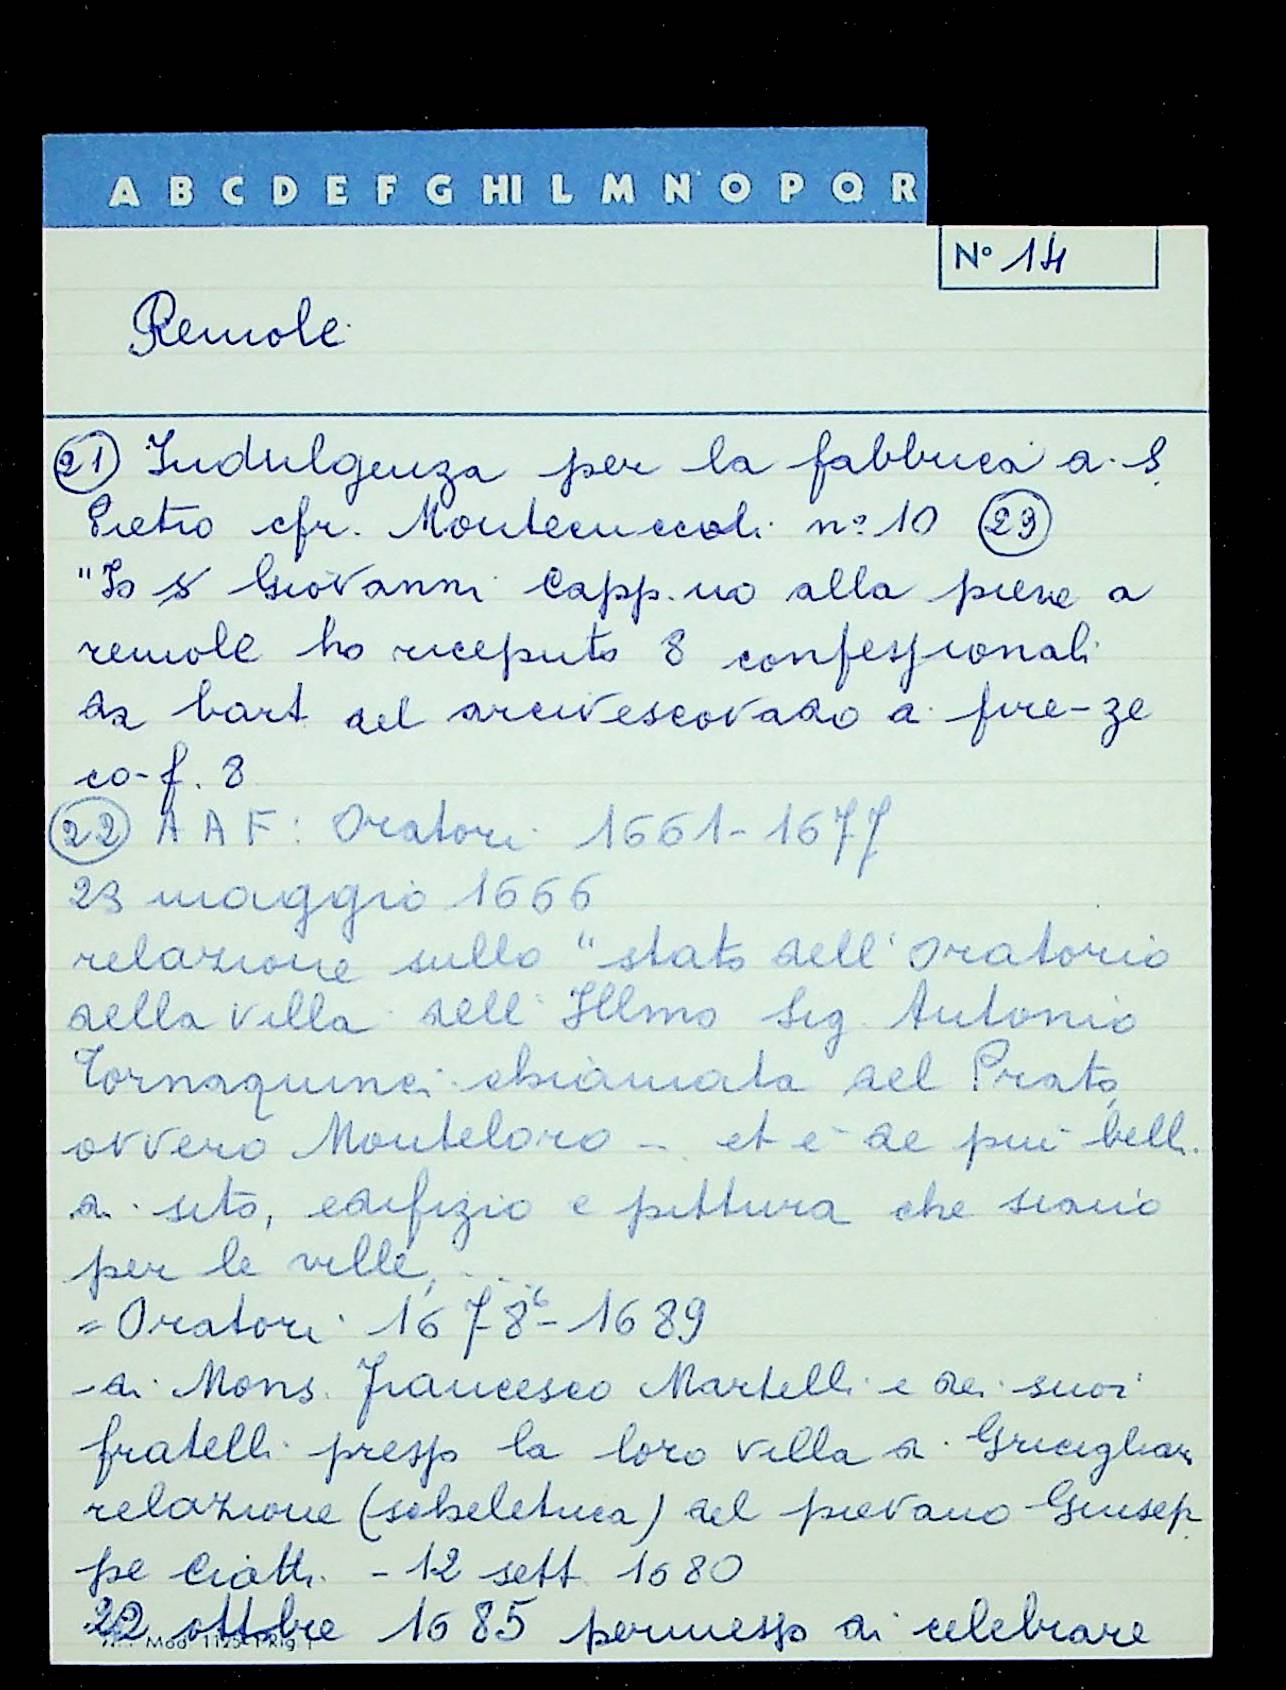 A B C D E F G HI L M N O P Q R
N° 14
Remole
21 Indulgenza per la fabbrica di S.
Pietro cfr. Montecuccoli n° 10 (29)
"Io s Giovanni Capp.no alla pieve a
remole ho riceputo 8 confessionali
da bart. del arcivescovado di fire-ze
co-f. 8
22 AAF: Oratori 1661-1677
23 maggio 1666
relazione sullo "stato dell'oratorio
della villa dell'Illmo Sig. Antonio
Tornaquinci chiamata del Prato,
ovvero Monteloro - et è de più belli
di sito, edifizio e pittura che siano
per le ville, ...
= Oratori 1678⁶-1689
- di Mons. Francesco Martelli e dei suoi
fratelli presso la loro villa di Griciglian
relazione (scheletrica) del pievano Giusep
pe Ciatti - 12 sett. 1680
22 ottobre 1685 permesso di celebrare